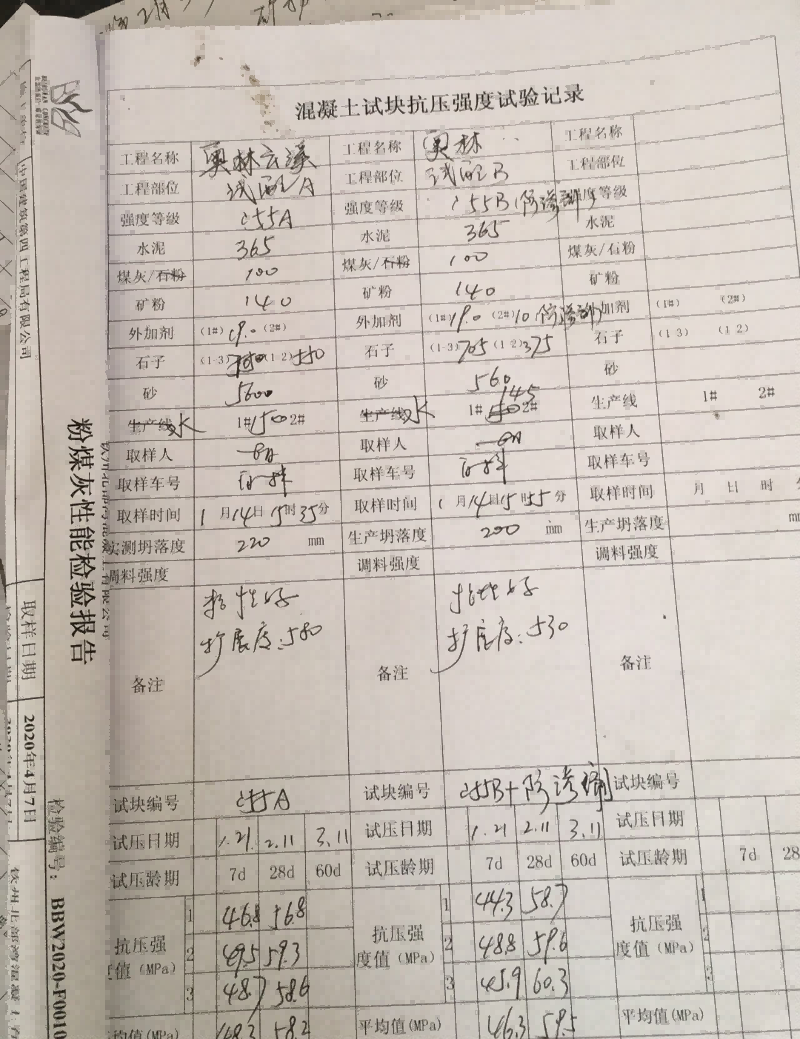 混凝土试块抗压强度试验记录
工程名称 奥林云溪 工程名称 奥林 工程名称
工程部位 试配A 工程部位 试配B 工程部位
强度等级 C55A 强度等级 C55B(防渗 度等级
水泥 365 水泥 365 水泥
煤灰/石粉 100 煤灰/石粉 100 煤灰/石粉
矿粉 140 矿粉 140 矿粉
外加剂 (1#) 19.0 (2#) 外加剂 (1#) 19.0 (2#) 10 防渗 加剂 (1#) (2#)
石子 (1-3) (1-2) 550 石子 (1-3) 705 (1-2) 375 石子 (1-3) (1-2)
砂 砂 560 砂
生产线 水 1# 150 2# 生产线 水 1# 145 2# 生产线 1# 2#
取样人 取样人 取样人
取样车号 取样车号 取样车号
取样时间 1月14日15时35分 取样时间 1月14日15时55分 取样时间 月 日 时
实测坍落度 220 mm 生产坍落度 200 mm 生产坍落度 mm
调料强度 调料强度 调料强度
备注 粘性好 备注 粘性好 备注
扩展度:580 扩展度:530
试块编号 C55A 试块编号 C55B+防渗 试块编号
试压日期 1.21 2.11 3.11 试压日期 1.21 2.11 3.11 试压日期
试压龄期 7d 28d 60d 试压龄期 7d 28d 60d 试压龄期 7d 28
抗压强度值(MPa) 1 46.8 56.8 抗压强度值(MPa) 1 44.3 58.7 抗压强度值(MPa) 1
2 49.5 59.3 2 48.8 59.6 2
3 48.7 58.6 3 45.9 60.3 3
平均值(MPa) 48.3 58.2 平均值(MPa) 46.3 59.5 平均值(MPa)
中国建筑第四工程局有限公司
粉煤灰性能检验报告
取样日期 2020年4月7日
检验编号: BBW2020-F0010